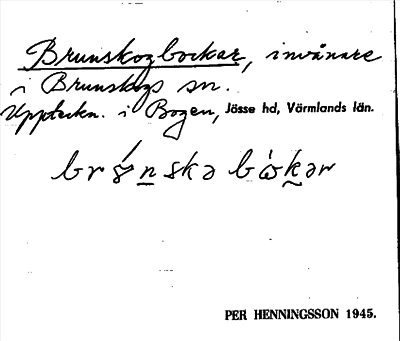 Brunskogbockar, invånare
i Brunskogs sn.
Uppteckn. i Bogen, Jösse hd, Värmlands län.
PER HENNINGSSON 1945.